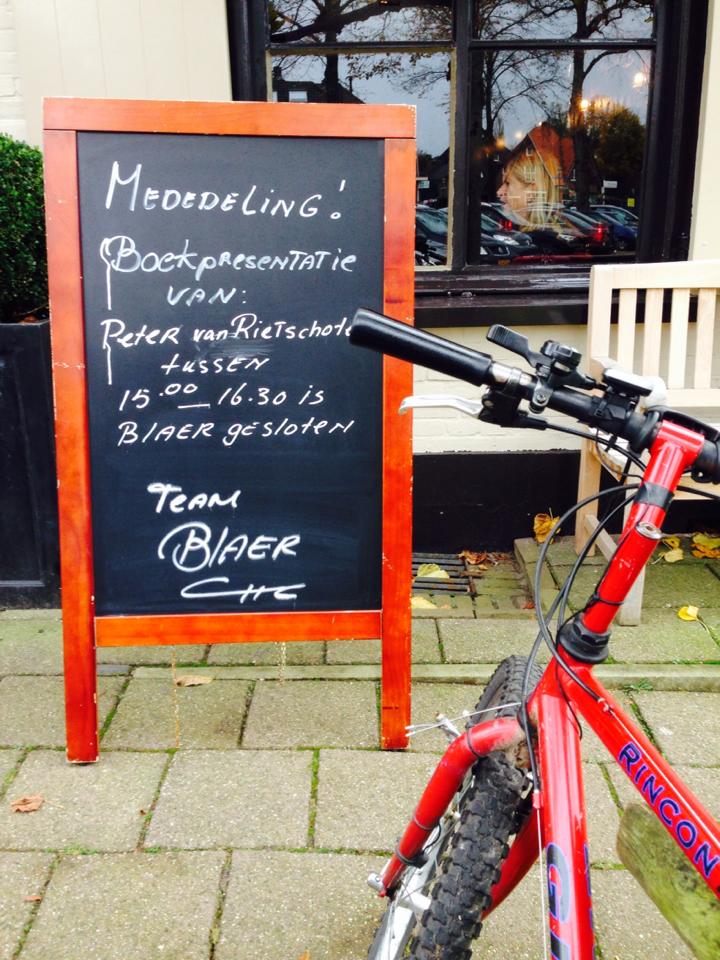 MEDEDELING!
BOEKPRESENTATIE
VAN:
PETER van RIETSCHOTE
tussEN
15.00 — 16.30 is
BLAER gesloten
TEAM
BLAER
RINCON